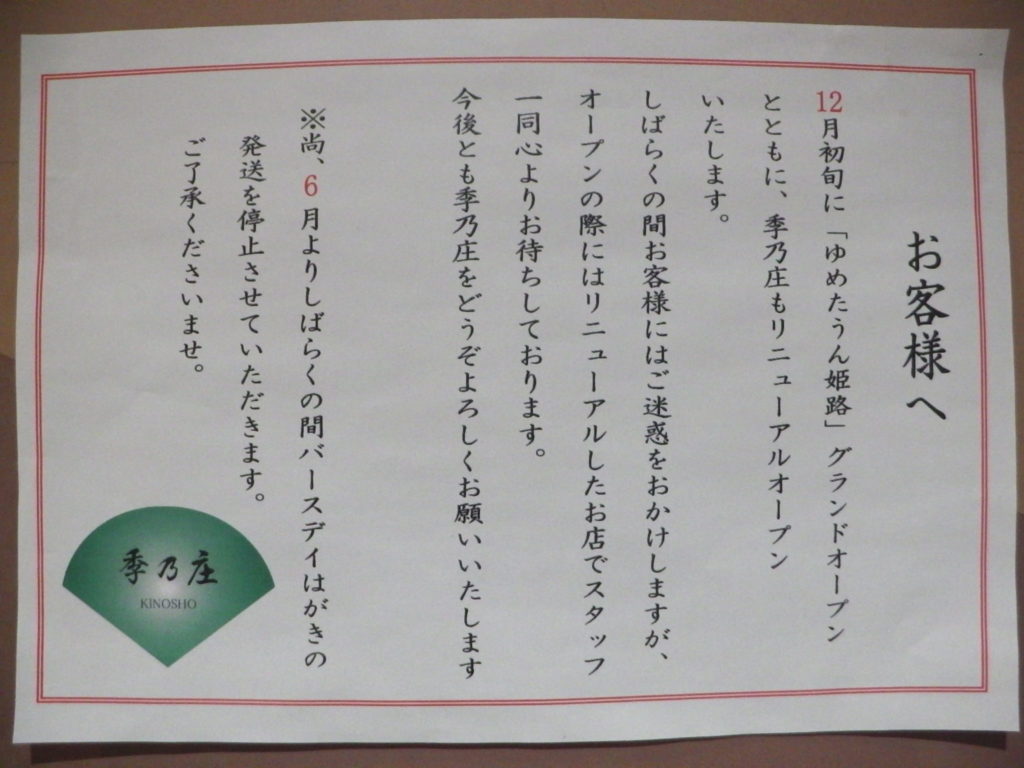 お客様へ
12月初旬に「ゆめたうん姫路」グランドオープン
とともに、季乃庄もリニューアルオープン
いたします。
しばらくの間お客様にはご迷惑をおかけしますが、
オープンの際にはリニューアルしたお店でスタッフ
一同心よりお待ちしております。
今後とも季乃庄をどうぞよろしくお願いいたします
※尚、6月よりしばらくの間バースデイはがきの
発送を停止させていただきます。
ご了承くださいませ。
季乃庄
KINOSHO